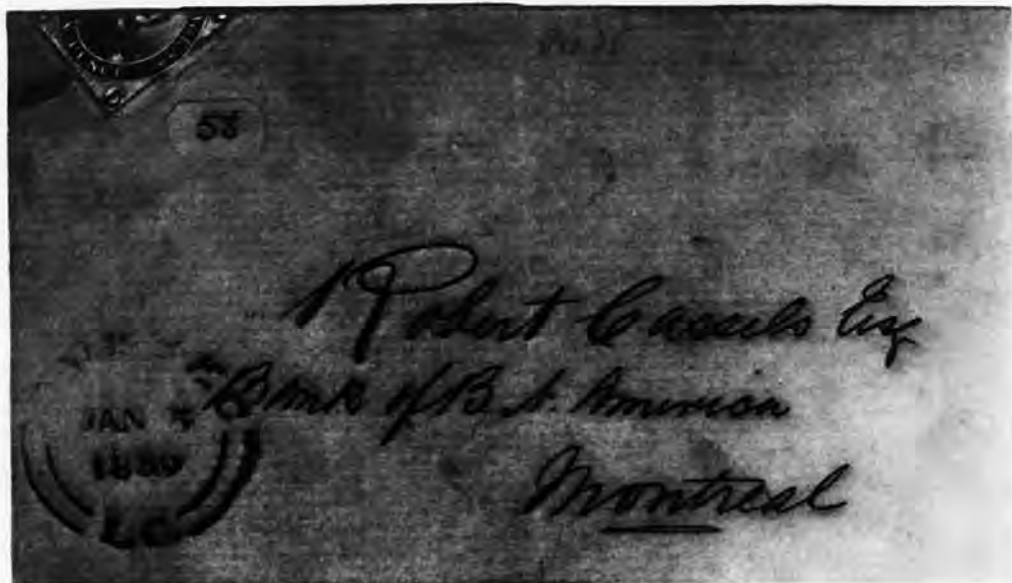 58
Robert Cassels Esq
Bank of B. N. America
Montreal
JAN
1859
L.C